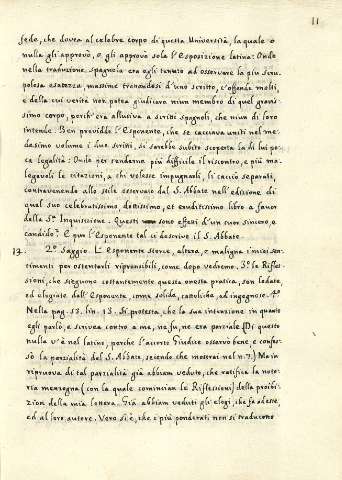 11
fede, che dovea al celebre corpo di questa Università, la quale o
nulla gli approvò, o gli approvò sola l'Esposizione latina: Onde
nella traduzione spagnola era egli tenuto ad osservare la più scru-
polosa esatezza, massime trattandosi d'uno scritto, ch'offende molti,
e della cui verità non potea giudicare niun membro di quel gravis-
simo corpo, perch'era allusiva a scritti spagnoli, che niun di loro
intende. Ben previdde l'Esponente, che se cacciava uniti nel me-
desimo volume i due scritti, si sarebbe subito scoperta la di lui po-
ca legalità: Onde per renderne più difficile il riscontro, e più ma-
lagevoli le citazioni, a chi volesse impugnarli, li cacciò separati,
contravenendo allo stile osservato dal S. Abbate nell'edizione di
quel suo celebratissimo, dottissimo, et eruditissimo libro a favor
della Sta. Inquisizione. Questi sono effetti d'un cuor sincero, e
candido? E pur l'Esponente tal ci descrive il S. Abbate.
13. 2o. Saggio. L'Esponente storce, altera, e maligna i miei sen-
timenti per ostentarli riprensibili, come dopo vedremo. 3o. le Rifles-
sioni, che sieguono costantemente questa onesta pratica, son lodate,
ed elogiate dall'Esponente, come solide, cattoliche, ed ingegnose. 4o.
Nella pag. 53. lin. 13. Si protesta, che la sua intenzione in quanto
egli parlò, e scrivea contro a me, ne fu, ne era parziale (Di questo
nulla v'è nel latino, perche l'accorto Giudice osservò bene, e confes-
sò la parzialità del S. Abbate, secondo che mostrai nel n. 7.) Ma in
ripruova di tal parzialità già abbiam veduto, che ratifica la noto-
ria menzogna (con la quale cominciano le Riflessioni) della proibi-
zion della mia lettera. Già abbiam veduti gli elogi, che fa ad esse,
ed al loro autore. Vero si è, che i più ponderati non si traducono